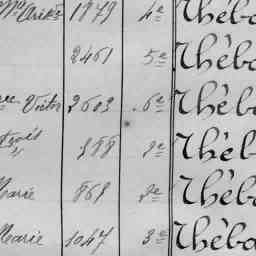 1879 4e Théb
2461 5e Théb
Victor 2603 6e Théb
388 2e Théb
Marie 868 2e Théb
Marie 1047 3e Théb